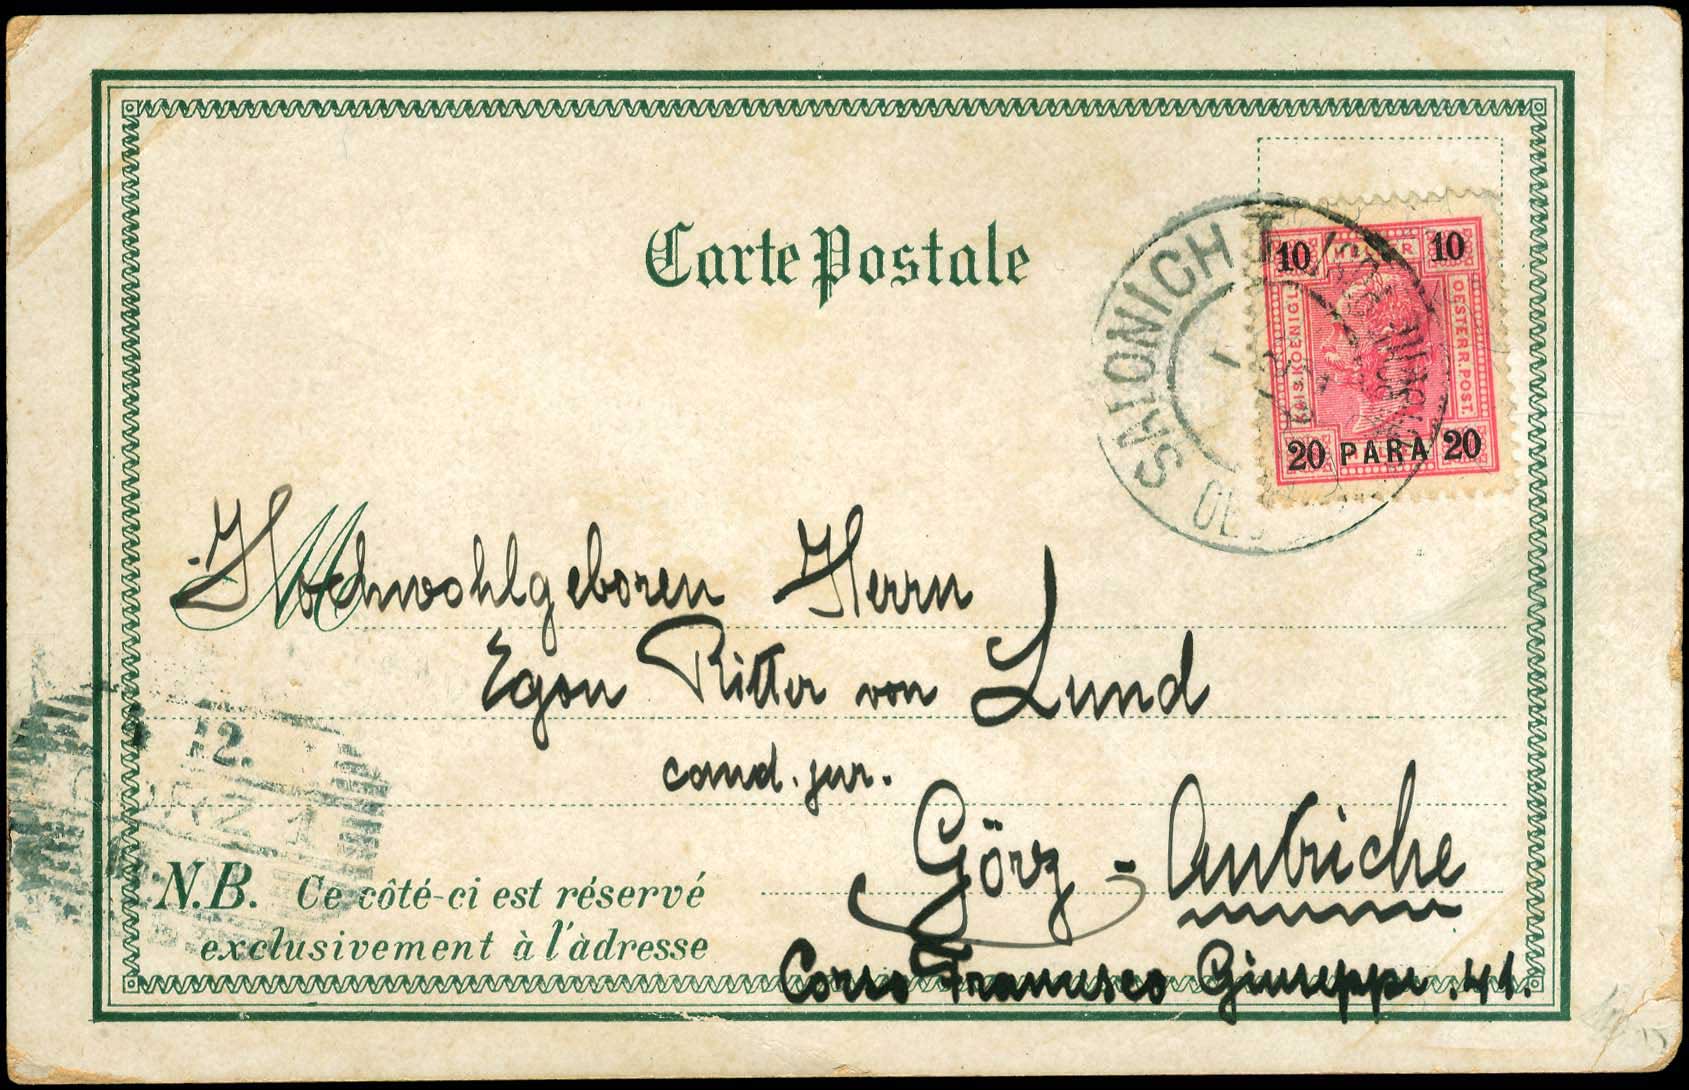 Carte Postale
10 HELLER 10
KAIS. KOENIGL.
OESTERR. POST.
20 PARA 20
SALONICH I
M
Hochwohlgeboren Herrn
Egon Ritter von Lund
cand. jur.
Görz - Autriche
Corso Francesco Giuseppe 41.
12.
N.B. Ce côté-ci est réservé
exclusivement à l'àdresse